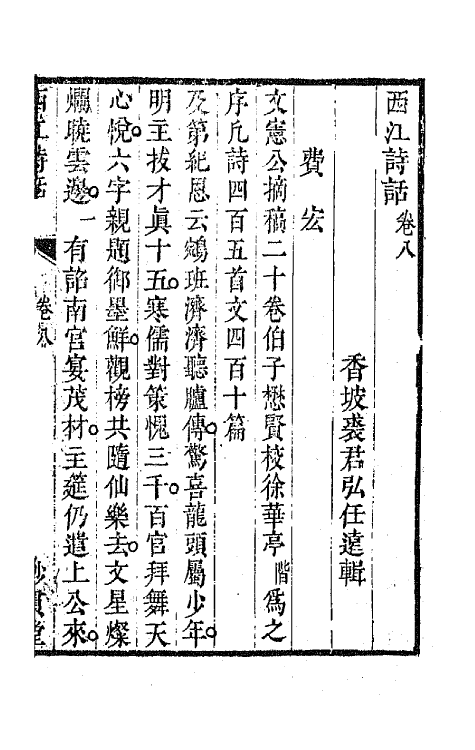 西江詩話卷八
香坡裘君弘任遠輯
費宏
文憲公摘稿二十卷伯子懋賢校徐華亭階爲之
序凡詩四百五首文四百十篇
及第紀恩云鵷班濟濟聽臚傳驚喜龍頭屬少年
明主拔才眞十五寒儒對策愧三千百官拜舞天
心悅六字親題御墨鮮觀榜共隨仙樂去文星燦
爛曉雲邊一有詔南宮宴茂材主筵仍遣上公來
西江詩話
卷八
妙貫堂